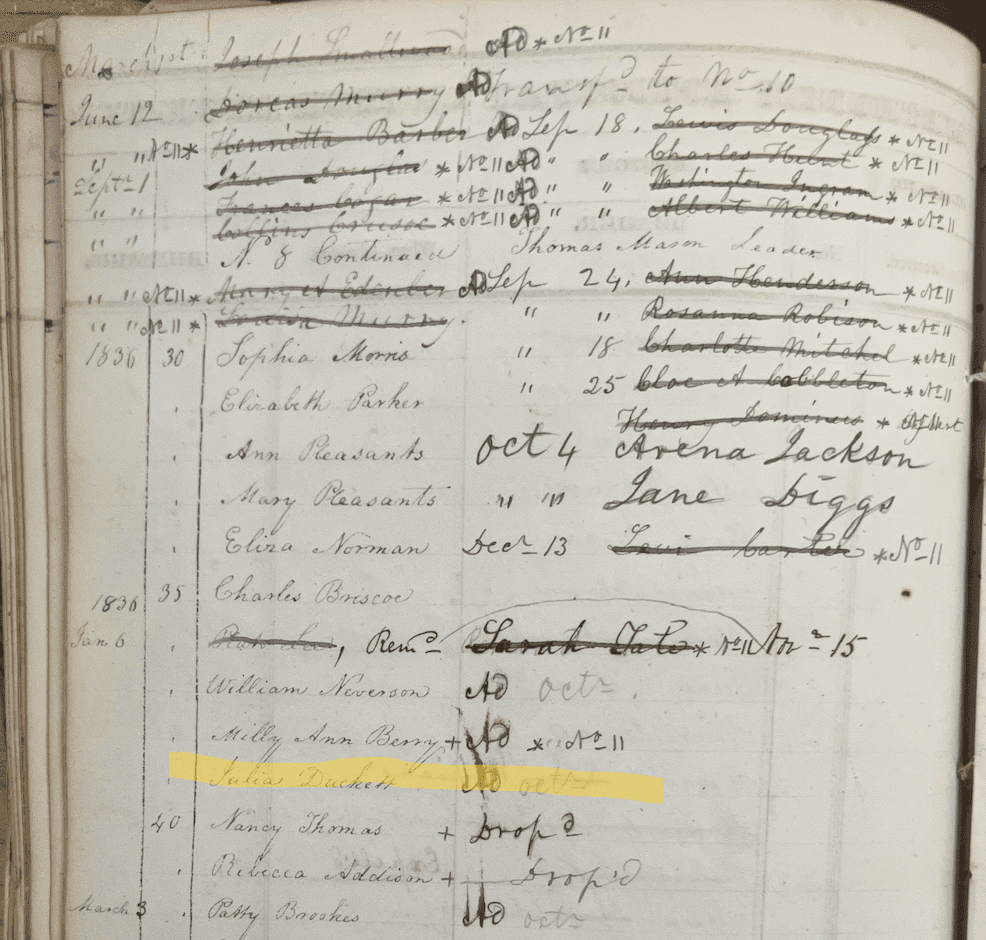 March 1st Joseph Smallwood Ad * No 11
June 12 Dorcas Murry Ad Transf'd to No. 10
" " No 11 * Henrietta Barber Ad Sep 18. Lewis Douglass * No 11
Septr 1 John Douglas * No 11 Ad " " Charles Hunt * No 11
" " Frances Cogar * No 11 Ad " " Washington Ingram * No 11
" " Collins Crusoe * No 11 Ad " " Albert Williams * No 11
N. 8 Continued Thomas Mason Leader
" " No 11 * Mary A Edenber Ad Sep 24. Ann Henderson * No 11
" " No 11 * Louisa Murry. " " Rosanna Robison * No 11
1836 30 Sophia Morris " 18 Charlotte Mitchel * No 11
" 25 Cloe A Cobbleton * No 11
Elizabeth Parker
Henry Dominus *
Ann Pleasants Oct 4 Arena Jackson
Mary Pleasants " " Jane Diggs
Eliza Norman Decr 13 Levi Carter * No 11
1836 35 Charles Briscoe
Jan 6 , Remd Sarah Tate * No 11 15
William Neverson Ad Octr.
Milly Ann Berry + Ad * No 11
Julia Duckett Ad Octr
40 Nancy Thomas + Drop'd
Rebecca Addison + Drop'd
March 3 Patty Brookes Ad Octr